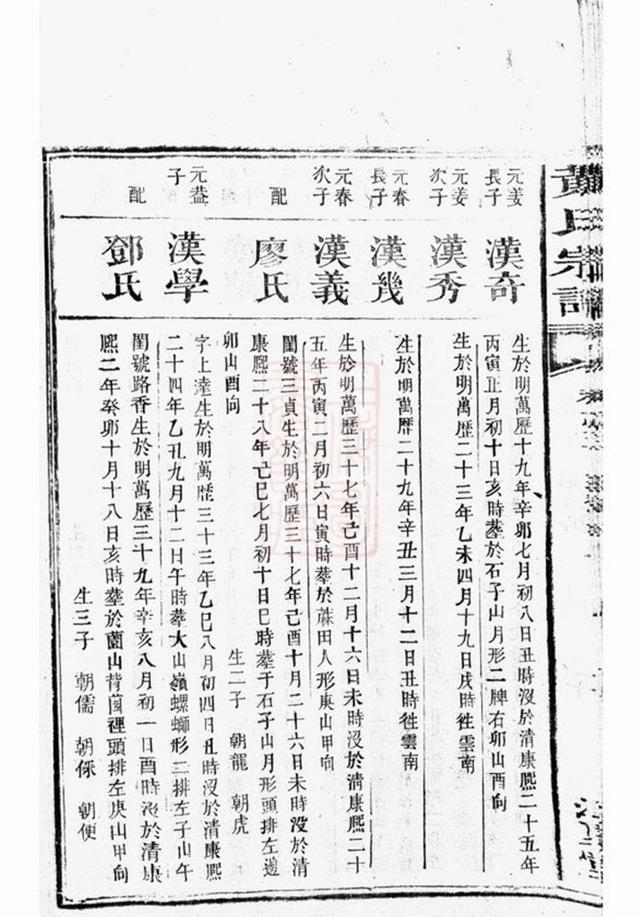 黃氏宗譜
元姜長子
漢奇
生於明萬歷十九年辛卯七月初八日丑時沒於清康熙二十五年
丙寅正月初十日亥時塟於石子山月形二脾右卯山酉向
元姜次子
漢秀
生於明萬歷二十三年乙未四月十九日戌時徃雲南
元春長子
漢幾
生於明萬歷二十九年辛丑三月十二日丑時徃雲南
元春次子
漢義
生於明萬歷三十七年己酉十二月十六日未時沒於清康熙二十
五年丙寅二月初六日寅時塟於蔴田人形庚山甲向
配
廖氏
閨號三貞生於明萬歷三十七年己酉十月二十六日未時沒於清
康熙二十八年己巳七月初十日巳時塟于石子山月形頭排左邊
卯山酉向
生二子 朝龍 朝虎
元益子
漢學
字上達生於明萬歷三十三年乙巳八月初四日丑時沒於清康熙
二十四年乙丑九月十二日午時塟大山嶺螺螄形二排左子山午
配
鄧氏
閨號路香生於明萬歷三十九年辛亥八月初一日酉時沒於清康
熙二年癸卯十月十八日亥時塟於蘭山背茵裡頭排左庚山甲向
生三子 朝儒 朝保 朝便